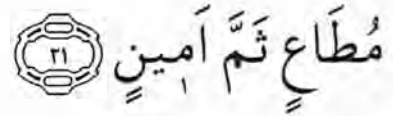 مُطَاعٍ ثَمَّ اَم۪ينٍ ﴿٢١﴾